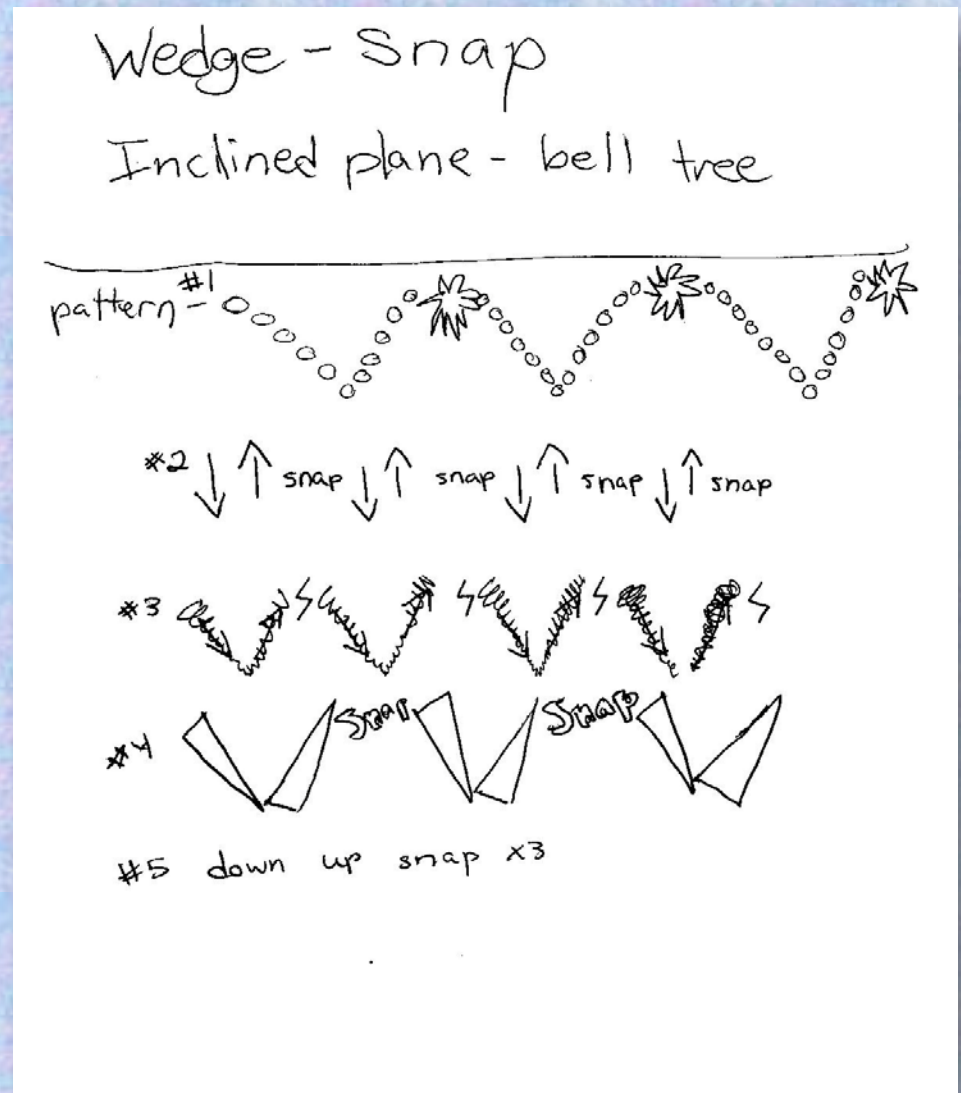 Wedge - Snap
Inclined plane - bell tree
pattern - #1
#2 ↓ ↑ snap ↓ ↑ snap ↓ ↑ snap ↓ ↑ snap
#3
#4 Snap Snap
#5 down up snap x3